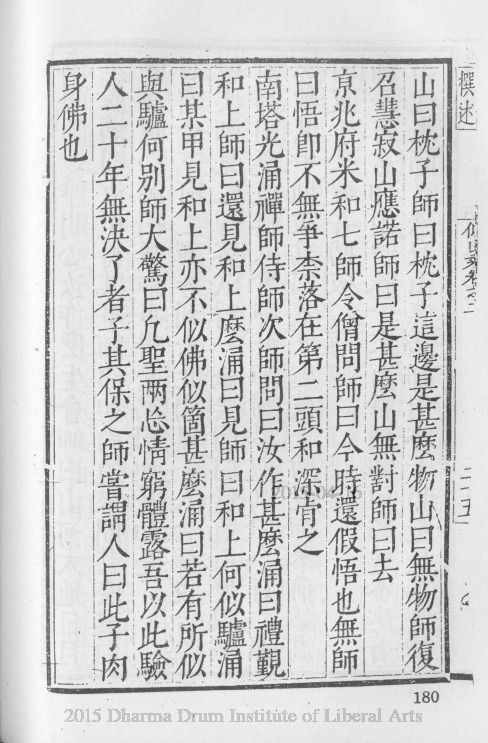 山曰枕子師曰枕子這邊是甚麽物山曰無物師復
召慧寂山應諾師曰是甚麽山無對師曰去
京兆府米和七師令僧問師曰今時還假悟也無師
曰悟卽不無爭柰落在第二頭和深肯之
南塔光涌禪師侍師次師問曰汝作甚麽涌曰禮覲
和上師曰還見和上麽涌曰見師曰和上何似驢涌
曰某甲見和上亦不似佛似箇甚麽涌曰若有所似
與驢何別師大驚曰凡聖兩忘情窮體露吾以此驗
人二十年無決了者子其保之師嘗謂人曰此子肉
身佛也
撰述
180
2015 Dharma Drum Institute of Liberal Arts